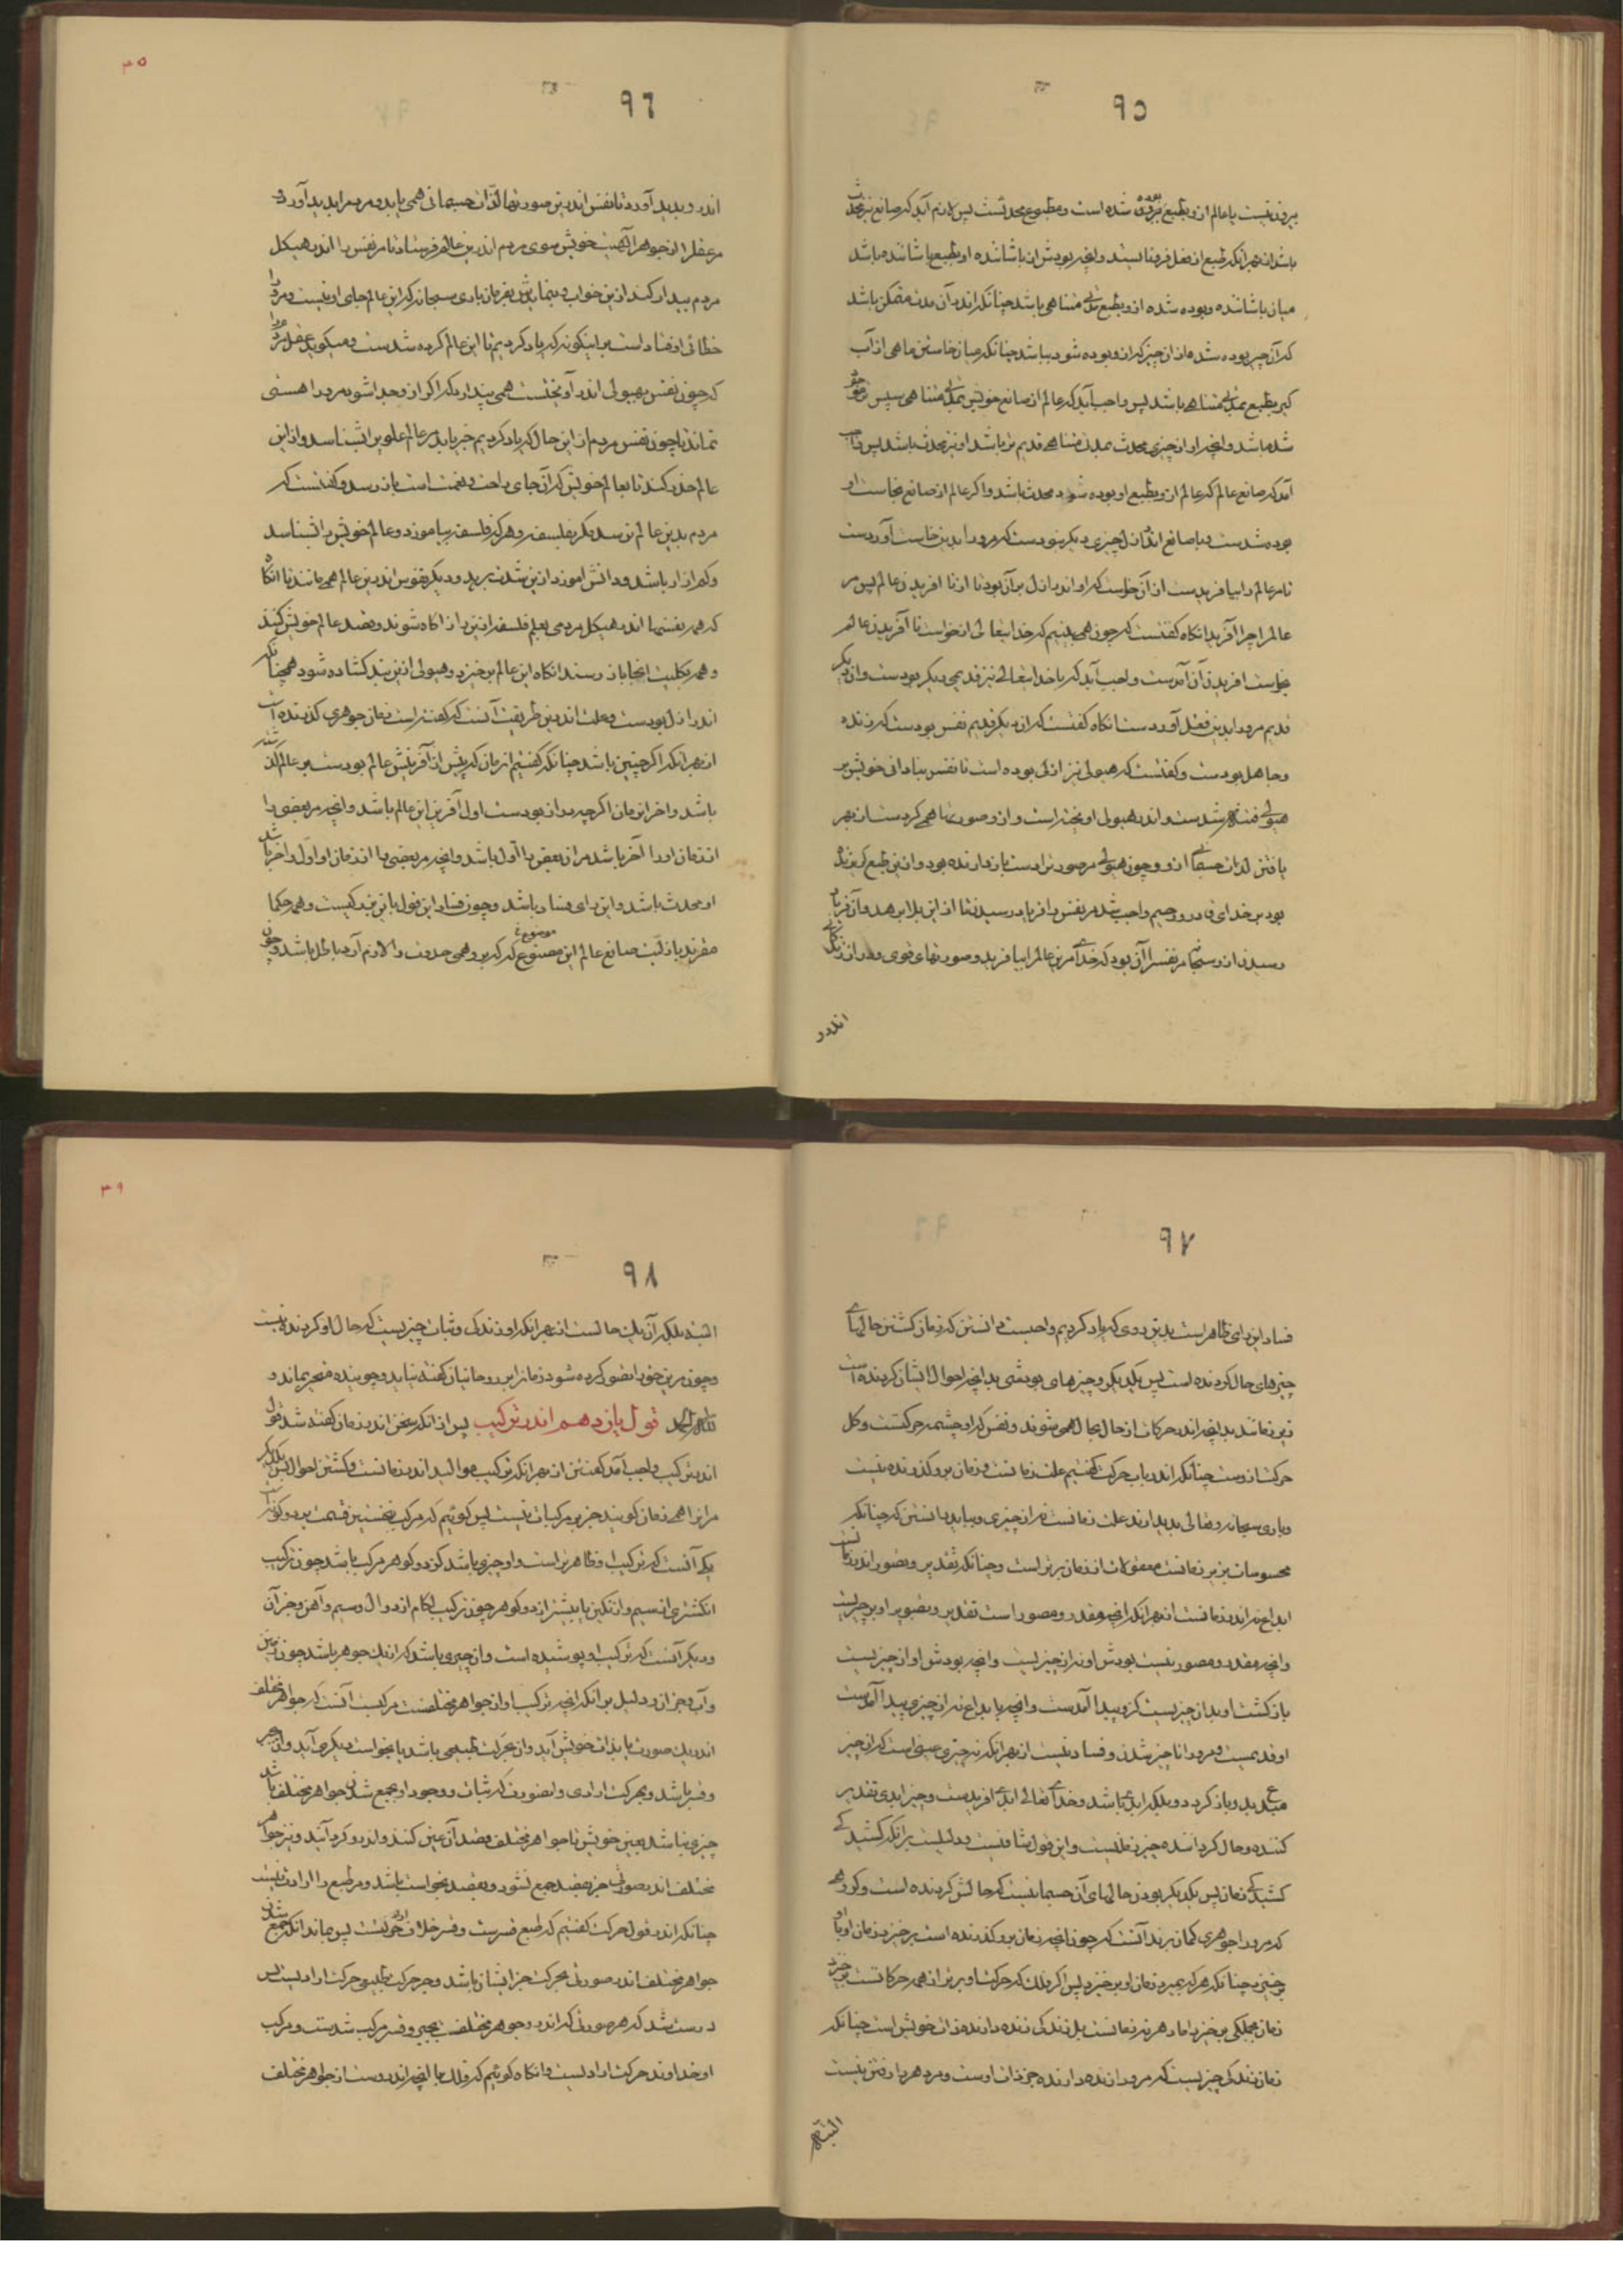 ٩٥
بیرون نیست یا عالم ازو بطبع بوده شده است و مطبوع محدثست پس لازم آید که صانع نیز محدث
باشد از بهر آنکه طبع از فعل فرو نایستد و آنچه بودش از باشاننده او بطبع باشاننده باشد
میان باشاننده و بوده شده ازو بطبع مدتی متناهی باشد چنانکه اندر آن مدت ممکن باشد
که آن چیز بوده شده از آن چیز که ازو بوده شود بباشد چنانکه میان خاستن ماهی از آب
گیر بطبع بمدتی متناهی باشد پس واجب آید که عالم از صانع خویش بمدتی متناهی سپس تر موجود
شده باشد و آنچه او از چیزی محدث بمدت متناهی قدیم تر باشد او نیز محدث باشد پس واجب
آمد که صانع عالم که عالم ازو بطبع او بوده شود محدث باشد و اگر عالم از صانع بخاست او
بوده شدست و با صانع اندر ازل چیزی دیگر نبودست که مرو را بدین خاست آوردست
تا مر عالم را بیافریدست از آن خواست که او اندر ازل بر آن بود تا از نا افریدن عالم پس مر
عالم را چرا آفرید انگاه گفتست که چون همی بینیم که خدایتعالی از خواست نا آفریدن عالم
بخواست افریدن آن آمدست واجب آید که با خدایتعالی نیز قدیمی دیگر بودست و آن دیگر
قدیم مرو را بدین فعل آوردست انگاه گفتست که آن دیگر قدیم نفس بودست که زنده
و جاهل بودست و گفتست که هیولی نیز ازلی بوده است تا نفس بنادانی خویش بر
هیولی فتنه شدست و اندر هیولی آویخته است و ازو صورتها همی کردست از بهر
یافتن لذات جسمانی ازو و چون هیولی مر صورت را دست بازدارنده بود و ازین طبع گریزنده
بود بر خدای قادر و رحیم واجب شد مر نفس را فریاد رسیدن تا ازین بلا برهد و آن فریاد
رسیدن ازو سبحانه مر نفس را آن بود که خدای مرین عالم را بیافرید و صورتهای قوی و دراز زندگانی
اندر
٩٦
٣٥
اندر و پدید آورد تا نفس اندرین صورتها لذات جسمانی همی یابد و مردم را پدید آورد و
مر عقل را از جوهر الهیت خویش سوی مردم اندرین عالم فرستاد تا مر نفس را اندر هیکل
مردم بیدار کند ازین خواب و بنمایدش بفرمان باری سبحانه که این عالم جای او نیست و مرو را
خطائی اوفتادست بر اینگونه که یاد کردیم تا این عالم کرده شدست و میگوید عقل مردم را
که چون نفس بهیولی اندر آویختست همی پندارد که اگر ازو جدا شود مرو را هستی
نماند تا چون نفس مردم ازین حال که یاد کردیم خبر یابد مر عالم علوی را بشناسد و ازین
عالم حذر کند تا بعالم خویش که آن جای راحت و نعمت است باز رسد و گفتست که
مردم بدین عالم نرسد مگر بفلسفه و هر که فلسفه بیاموزد و عالم خویش را بشناسد
و کم ازار باشد و دانش اموزد ازین شدت برهد و دیگر نفوس اندرین عالم همی مانند تا انگاه
که همه نفسها اندر هیکل مردمی بعلم فلسفه ازین راز اگاه شوند و قصد عالم خویش کنند
و همه بکلیت انجا باز رسند انگاه این عالم برخیزد و هیولی ازین بند گشاده شود همچنانکه
اندر ازل بودست و علت اندرین طریقت آنست که گفته است زمان جوهری گذرنده است
از بهر آنکه اگر چنین باشد چنانکه گفتیم ازمان که پیش از آفرینش عالم بودست بر عالم گذشته
باشد و اخر ان زمان اگر چه دراز بودست اول آفرینش این عالم باشد و آنچه مر بعضی را
از زمان اورا آخر باشد مران بعض را اول باشد و آنچه مر بعضی را از زمان او اول و اخر باشد
او محدث باشد و این رای فساد باشد و چون فساد این قول باین نزدیکیست و همه حکما
مقرند بازلیت صانع عالم این موضوع که گر برو همی حدوث را لازم آرد باطل باشد و چون
٩٧
فساد این رای ظاهر است بدین روی که یاد کردیم واجبست دانستن که زمان گشتن حالهای
چیزهای حال گردنده است پس یکدیگر و چیزهای بودشی بدانچه احوال ایشان گردنده است
زیر زمانند بدانچه اندر حرکات از حال بحال همی شوند و نفس که او چشمه حرکتست و کل
حرکت ازوست چنانکه اندر باب حرکت گفتیم علت زمانست و زمان برو گذرنده نیست
و باری سبحانه و تعالی پدید ارنده علت زمانست نه از چیزی و بباید دانستن که چنانکه
محسوسات بزیر زمانست معقولات از زمان برتر است و چنانکه تقدیر و تصور اندر زمانست
ابداع نه اندر زمانست از بهر آنکه آنچه مقدر و مصور است تقدیر و تصویر او بر چیزیست
و آنچه مقدر و مصور نیست بودش او نه از چیزیست و آنچه بودش او از چیزیست
بازگشت او بدان چیزیست کزو پیدا آمدست و آنچه بابداع نه از چیزی پیدا آمدست
او قدیمست و مرو را ناچیز شدن و فساد نیست از بهر آنکه نه چیزی عینی است که از چیز
مبدع پدید و باز گردد و بلکه ابدی باشد و خدای تعالی ابدی افریدست و چیز ابدی تقدیر
کننده و حال گرداننده چیز زمانیست و این قول شافیست و دلیلست برانکه کشیدگی
کشیدگی زمان پس یکدیگر بودن حالهای آن جسماینست که حالش گردنده است و گروهی
که مرو را جوهری گمان برند آنست که چون آنچه زمان برو گذرنده است برخیزد زمان او با او
برخیزد چنانکه هر که بمیرد زمان او برخیزد پس اگر فلک که حرکت او برتر از همه حرکاتست برخیزد
زمان بجملگی برخیزد اما دهر نه زمانست بل زندگی زنده دارنده ذات خویش است چنانکه
زمان زندگی چیزیست که مرو را زنده دارنده جز ذات اوست و مر دهر را رفتن نیست
البته
٩٨
٣٩
البته بلکه آن یک حالست از بهر آنکه او زندگی و ثبات چیزیست که حال او گردنده نیست
و چون مرین حق را تصور کرده شود زمان را بر روحانیان گفته نیاید و جوینده متحیر نماند و
لله الحمد قول یازدهم اندر ترکیب پس از انکه سخن اندر زمان گفته شد قول
اندر ترکیب واجب آمد گفتن از بهر آنکه ترکیب موالید اندر زمانست و گشتن احوال پس یکدیگر
مر انرا همی زمان گویند جز بر مرکبات نیست پس گوئیم که مرکب نخستین قسمت بر دو گونه است
یکی آنست که ترکیب او ظاهر است و او چیزی باشد کز دو گوهر مرکب باشد چون ترکیب
انگشتری از سیم و از نگین یا بیشتر از دو گوهر چون ترکیب لگام از دوال و سیم و آهن و جز آن
و دیگر آنست که ترکیب او پوشیده است و ان چیزی باشد که از یک جوهر باشد چون زمین
و آب و جز ان و دلیل برانکه آنچه ترکیب او از جواهر مختلفست مرکب آنست که جواهر مختلف
اندر یک صورت یا بذات خویش آید و ان بحرکت طبیعی باشد یا بخواست دیگری آید و ان بجبر
و قسر باشد و بحرکت ارادی و ان صورت که ثبات و وجود او بجمع شدن جواهر مختلف باشد
چیزی نباشد بعین خویش تا جواهر مختلف قصد آن عین کنند و اندرو گرد آیند و نیز جواهر
مختلف اندر صورتی جز بقصد جمع نشود و قصد بخواست باشد و مر طبع را ارادت نیست
چنانکه اندر قول حرکت گفتیم که طبع قسرست و قسر خلاف خواست پس بماند انکه جمع شدن
جواهر مختلف اندر صورتی بحرکت جز ایشان باشد و جز حرکت طبیعی حرکت ارادیست پس
درست شد که هر صورتی که اندرو جوهر مختلفست بجبر و قسر مرکب شدست و مرکب
او خداوند حرکت ارادیست و انگاه گوئیم که فلک با آنچه اندروست از جواهر مختلف